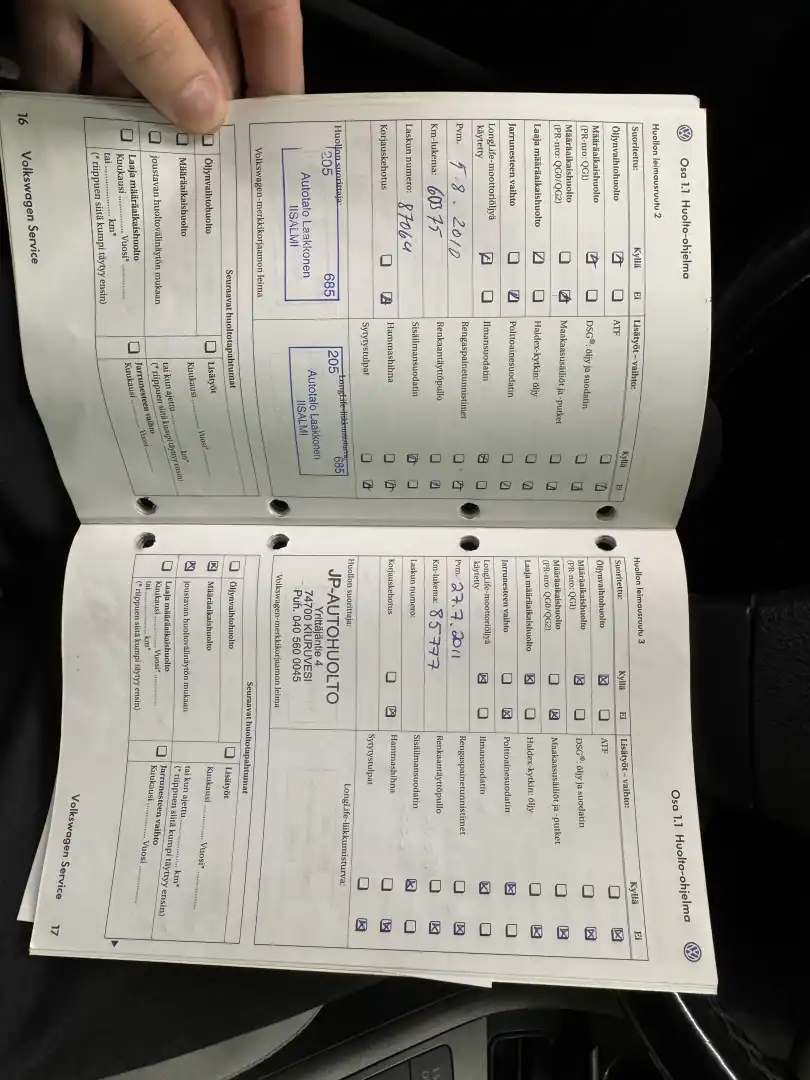 Osa 1.1 Huolto-ohjelma
Huollon leimausruutu 2
Suoritettu: Kyllä Ei
Öljynvaihtohuolto
Määräaikaishuolto
(PR-nro: QG1)
Määräaikaishuolto
(PR-nro: QG0/QG2)
Laaja määräaikaishuolto
Jarrunesteen vaihto
LongLife-moottoriöljyä
käytetty
Pvm. 5.8.2010
Km-lukema: 60375
Laskun numero: 87064
Korjauskehotus
Lisätyöt – vaihto: Kyllä Ei
ATF
DSG®: öljy ja suodatin
Maakaasusäiliöt ja -putket
Haldex-kytkin: öljy
Polttoainesuodatin
Ilmansuodatin
Rengaspainetunnistimet
Renkaantäyttöpullo
Sisäilmansuodatin
Hammashihna
Sytytystulpat
Huollon suorittaja:
205 685
Autotalo Laakkonen
IISALMI
Volkswagen-merkkikorjaamon leima
205 685
Autotalo Laakkonen
IISALMI
Seuraavat huoltotapahtumat
Öljynvaihtohuolto
Määräaikaishuolto
joustavan huoltovälinäytön mukaan
Laaja määräaikaishuolto
Kuukausi .............. Vuosi* ..............
tai .................. km*
(* riippuen siitä kumpi täytyy ensin)
Lisätyöt
Kuukausi .............. Vuosi* ..............
tai kun ajettu .................. km*
(* riippuen siitä kumpi täytyy ensin)
Jarrunesteen vaihto
Kuukausi .............. Vuosi ..............
16 Volkswagen Service
Osa 1.1 Huolto-ohjelma
Huollon leimausruutu 3
Suoritettu: Kyllä Ei
Öljynvaihtohuolto
Määräaikaishuolto
(PR-nro: QG1)
Määräaikaishuolto
(PR-nro: QG0/QG2)
Laaja määräaikaishuolto
Jarrunesteen vaihto
LongLife-moottoriöljyä
käytetty
Pvm. 27.7.2011
Km-lukema: 85777
Laskun numero:
Korjauskehotus
Lisätyöt – vaihto: Kyllä Ei
ATF
DSG®: öljy ja suodatin
Maakaasusäiliöt ja -putket
Haldex-kytkin: öljy
Polttoainesuodatin
Ilmansuodatin
Rengaspainetunnistimet
Renkaantäyttöpullo
Sisäilmansuodatin
Hammashihna
Sytytystulpat
Huollon suorittaja:
JP-AUTOHUOLTO
Yrittäjäntie 4
74700 KIURUVESI
Puh. 040 560 0045
Volkswagen-merkkikorjaamon leima
LongLife-liikkumisturva:
Seuraavat huoltotapahtumat
Öljynvaihtohuolto
Määräaikaishuolto
joustavan huoltovälinäytön mukaan
Laaja määräaikaishuolto
Kuukausi .............. Vuosi* ..............
tai .................. km*
(* riippuen siitä kumpi täytyy ensin)
Lisätyöt
Kuukausi .............. Vuosi* ..............
tai kun ajettu .................. km*
(* riippuen siitä kumpi täytyy ensin)
Jarrunesteen vaihto
Kuukausi .............. Vuosi ..............
Volkswagen Service 17